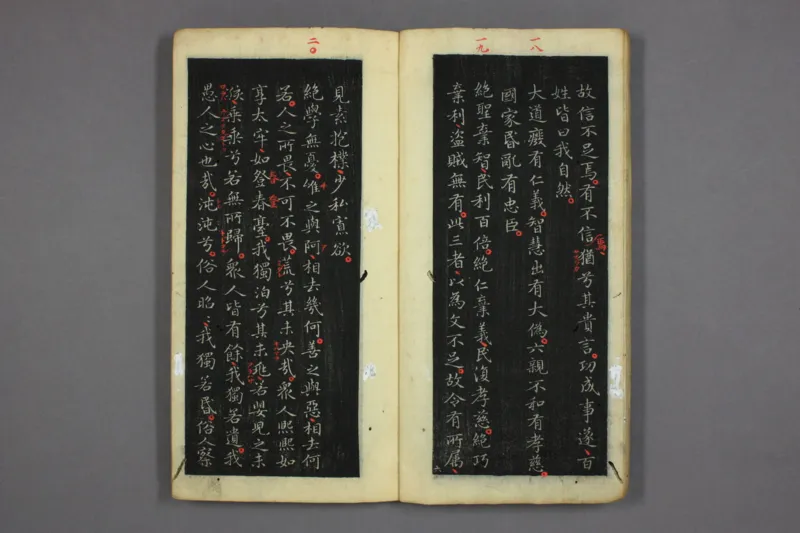 一八
一九
故信不足焉有不信猶兮其貴言功成事遂百
姓皆曰我自然
大道癈有仁義智慧出有大偽六親不和有孝慈
國家昬亂有忠臣
絕聖棄智民利百倍絕仁棄義民復孝慈絕巧
棄利盜賊無有此三者以為文不足故令有所属
二〇
見素抱樸少私寡欲
絕學無憂唯之與阿相去幾何善之與惡相去何
若人之所畏不可不畏荒兮其未央哉衆人熈熈如
享太牢如登春臺我獨泊兮其未兆若嬰兒之未
孩乘乘兮若無所歸衆人皆有餘我獨若遺我
愚人之心也哉沌沌兮俗人昭〻我獨若昬俗人察